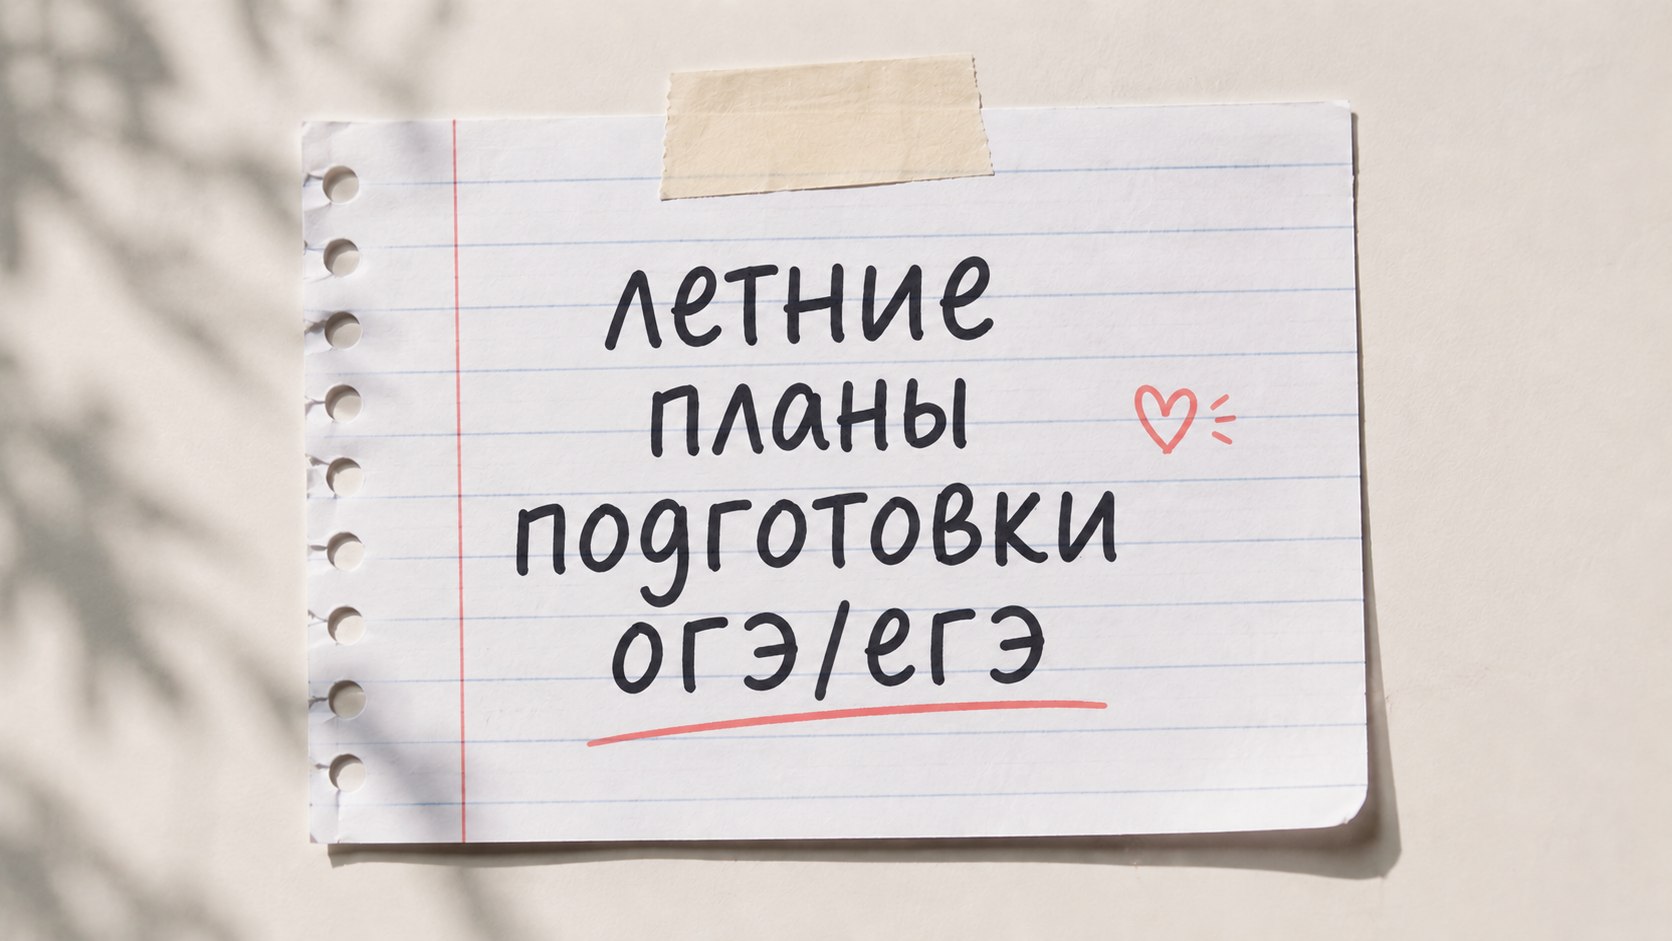 летние
планы
подготовки
огэ/егэ